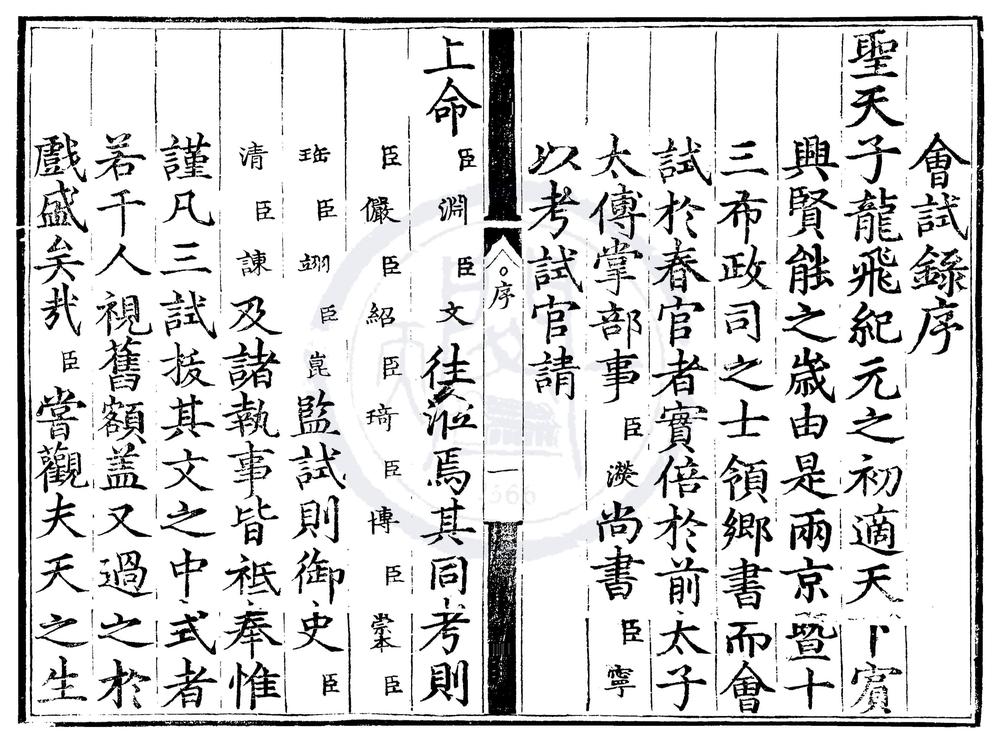 會試錄序
聖天子龍飛紀元之初適天下賓
興賢能之歲由是兩京暨十
三布政司之士領鄉書而會
試於春官者實倍於前太子
太傅掌部事臣濙尚書臣寧
以考試官請
序
一
上命臣淵臣文往涖焉其同考則
臣儼臣紹臣琦臣博臣崇臣
珤臣翊臣崑監試則御史臣
清臣諫及諸執事皆祗奉惟
謹凡三試拔其文之中式者
若干人視舊額盖又過之於
戲盛矣㢤臣嘗觀夫天之生